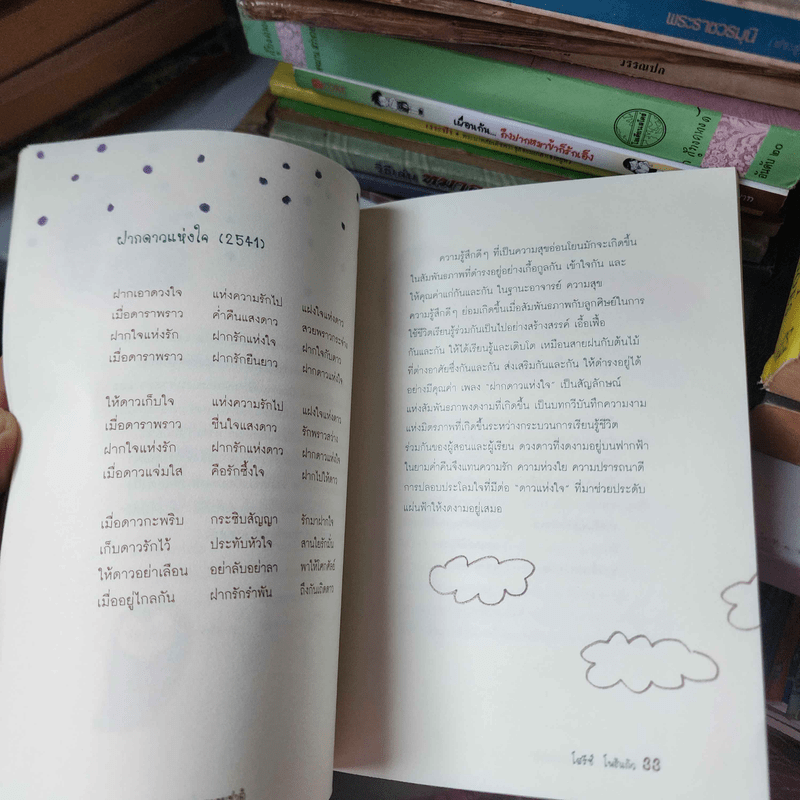 พระราชวรมุนี
วรรณปก
เมื่อนกัน... ถึงปากหมาข้าก็รักเอ็ง
อันดับ ๒๐
ฝากดาวแห่งใจ (2541)
ฝากเอาดวงใจ แห่งความรักไป แฝงใจแห่งดาว
เมื่อดาราพราว ค่ำคืนแสงดาว สวยพราวกระจ่าง
ฝากใจแห่งรัก ฝากรักแห่งใจ ฝากใจกับดาว
เมื่อดาราพราว ฝากรักยืนยาว ฝากดาวแห่งใจ
ให้ดาวเก็บใจ แห่งความรักไป แฝงใจแห่งดาว
เมื่อดาราพราว ชื่นใจแสงดาว รักพราวสว่าง
ฝากใจแห่งรัก ฝากรักแห่งดาว ฝากดาวแห่งใจ
เมื่อดาวแจ่มใส คือรักซึ้งใจ ฝากไปให้ดาว
เมื่อดาวกะพริบ กระซิบสัญญา รักมาฝากใจ
เก็บดาวรักไว้ ประทับหัวใจ สานใยรักมั่น
ให้ดาวอย่าเลือน อย่าลับอย่าลา พาให้โศกศัลย์
เมื่ออยู่ไกลกัน ฝากรักรำพัน ถึงกันเถิดดาว
ความรู้สึกดีๆ ที่เป็นความสุขอ่อนโยนมักจะเกิดขึ้น
ในสัมพันธภาพที่ดำรงอยู่อย่างเกื้อกูลกัน เข้าใจกัน และ
ให้คุณค่าแก่กันและกัน ในฐานะอาจารย์ ความสุข
ความรู้สึกดีๆ ย่อมเกิดขึ้นเมื่อสัมพันธภาพกับลูกศิษย์ในการ
ใช้ชีวิตเรียนรู้ร่วมกันเป็นไปอย่างสร้างสรรค์ เอื้อเฟื้อ
กันและกัน ให้ได้เรียนรู้และเติบโต เหมือนสายฝนกับต้นไม้
ที่ต่างอาศัยซึ่งกันและกัน ส่งเสริมกันและกัน ให้ดำรงอยู่ได้
อย่างมีคุณค่า เพลง "ฝากดาวแห่งใจ" เป็นสัญลักษณ์
แห่งสัมพันธภาพงดงามที่เกิดขึ้น เป็นบทกวีบันทึกความงาม
แห่งมิตรภาพที่เกิดขึ้นระหว่างกระบวนการเรียนรู้ชีวิต
ร่วมกันของผู้สอนและผู้เรียน ดวงดาวที่งดงามอยู่บนฟากฟ้า
ในยามค่ำคืนจึงแทนความรัก ความห่วงใย ความปรารถนาดี
การปลอบประโลมใจที่มีต่อ "ดาวแห่งใจ" ที่มาช่วยประดับ
แผ่นฟ้าให้งดงามอยู่เสมอ
โสรีช์ โพธิแก้ว 33